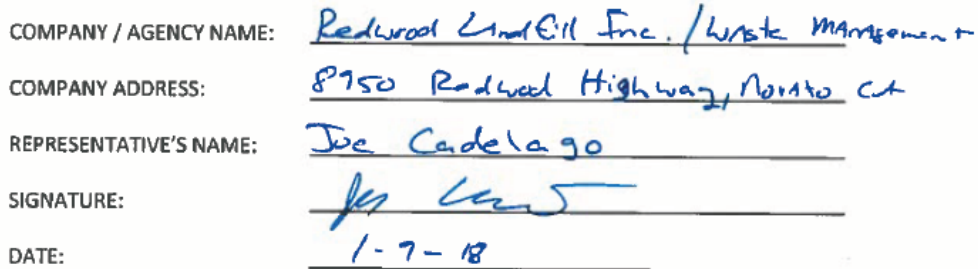 COMPANY / AGENCY NAME: Redwood Landfill Inc. / Waste Management
COMPANY ADDRESS: 8950 Redwood Highway, Novato CA
REPRESENTATIVE'S NAME: Joe Cadelago
SIGNATURE:
DATE: 1-9-18